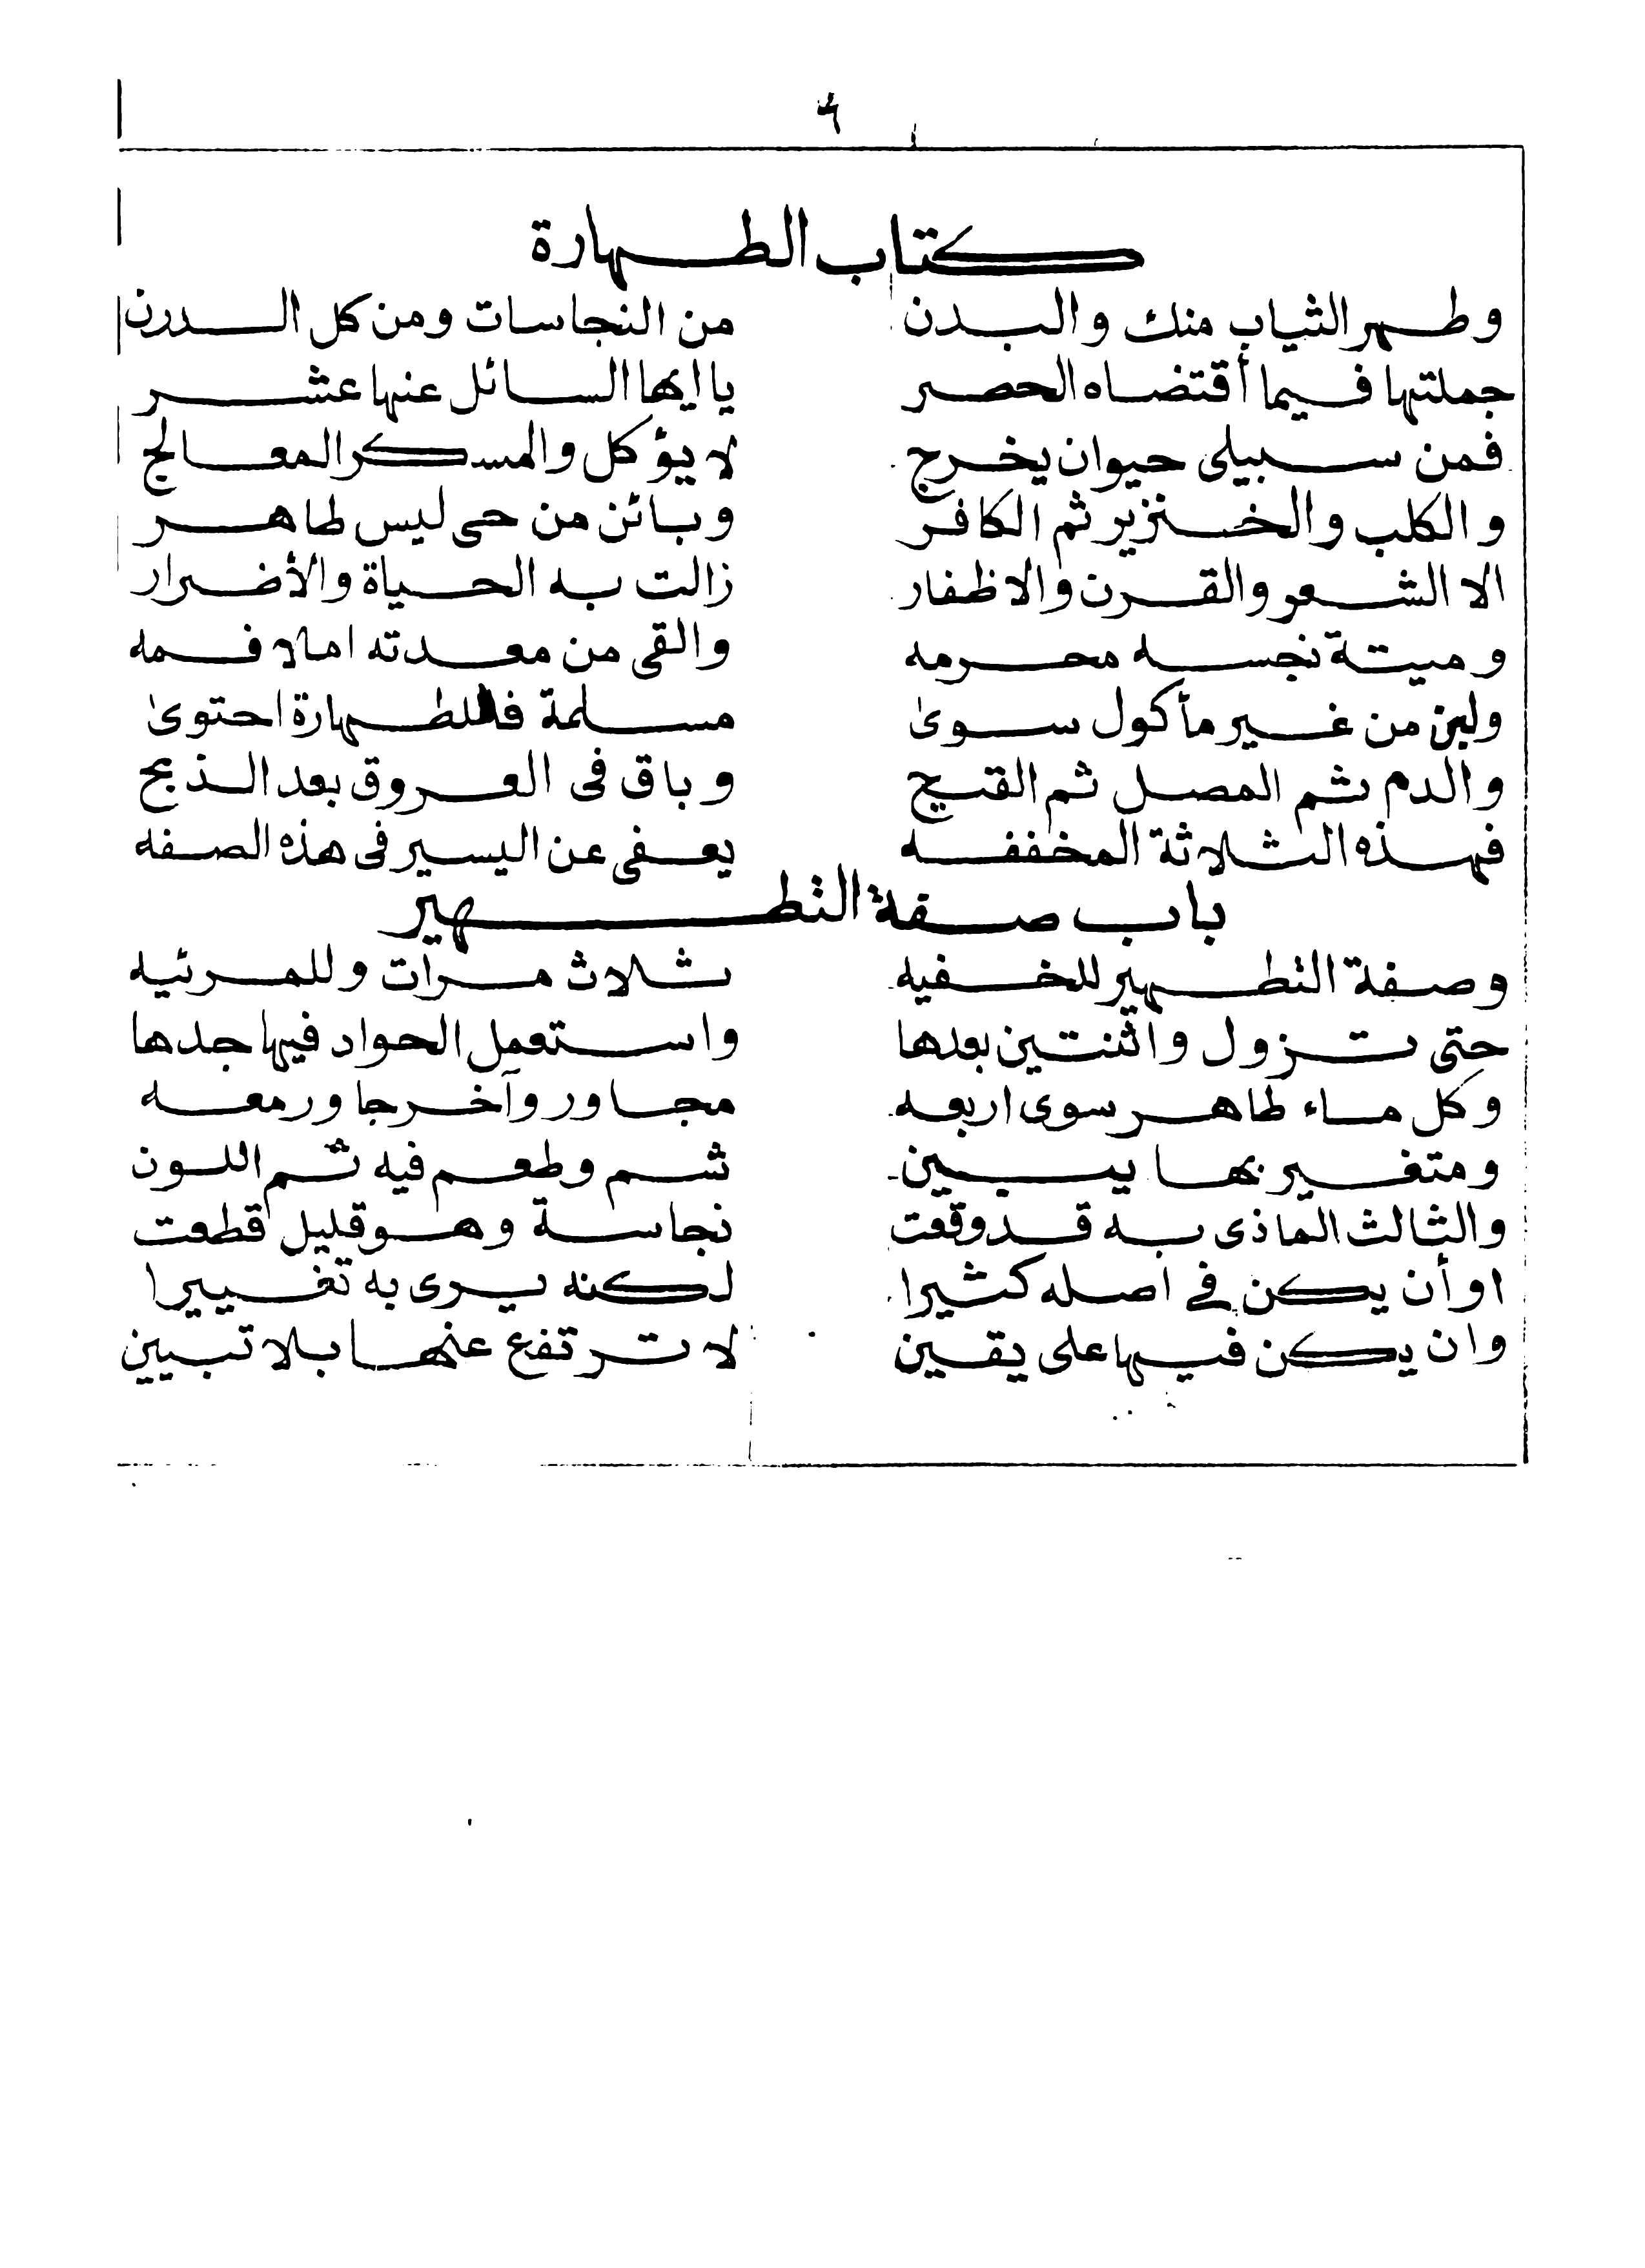 ٦
كتاب الطهارة
وطهر الثياب منك والبدن من النجاسات ومن كل الدرن
جملتها فيما أقتضاه الحصر يا ايها السائل عنها عشر
فمن سبيلى حيوان يخرج لا يؤكل والمسكر المعالج
والكلب والخنزير ثم الكافر وبائن من حى ليس طاهر
الا الشعر والقرن والاظفار زالت به الحياة والأضرار
وميتة نجسه محرمه والقى من معدته املا فمه
ولبن من غير مأكول سوى مسلمة فللطهارة احتوى
والدم ثم المصل ثم القيح وباق فى العروق بعد الذبح
فهذه الثلاثة المخففه يعفى عن اليسير فى هذه الصفه
باب صفة التطهير
وصفة التطهير للخفيه ثلاث مرات وللمرئيه
حتى تزول واثنتين بعدها واستعمل الحواد فيها جدها
وكل ماء طاهر سوى اربعه مجاور وآخر جاور معه
ومتغير بها يبين شم وطعم فيه ثم اللون
والثالث الماذى به قد وقعت نجاسة وهو قليل قطعت
او أن يكن في اصله كثيرا لكنه يرى به تغييرا
وان يكن فيها على يقين لا ترتفع عنها بلا تبيين